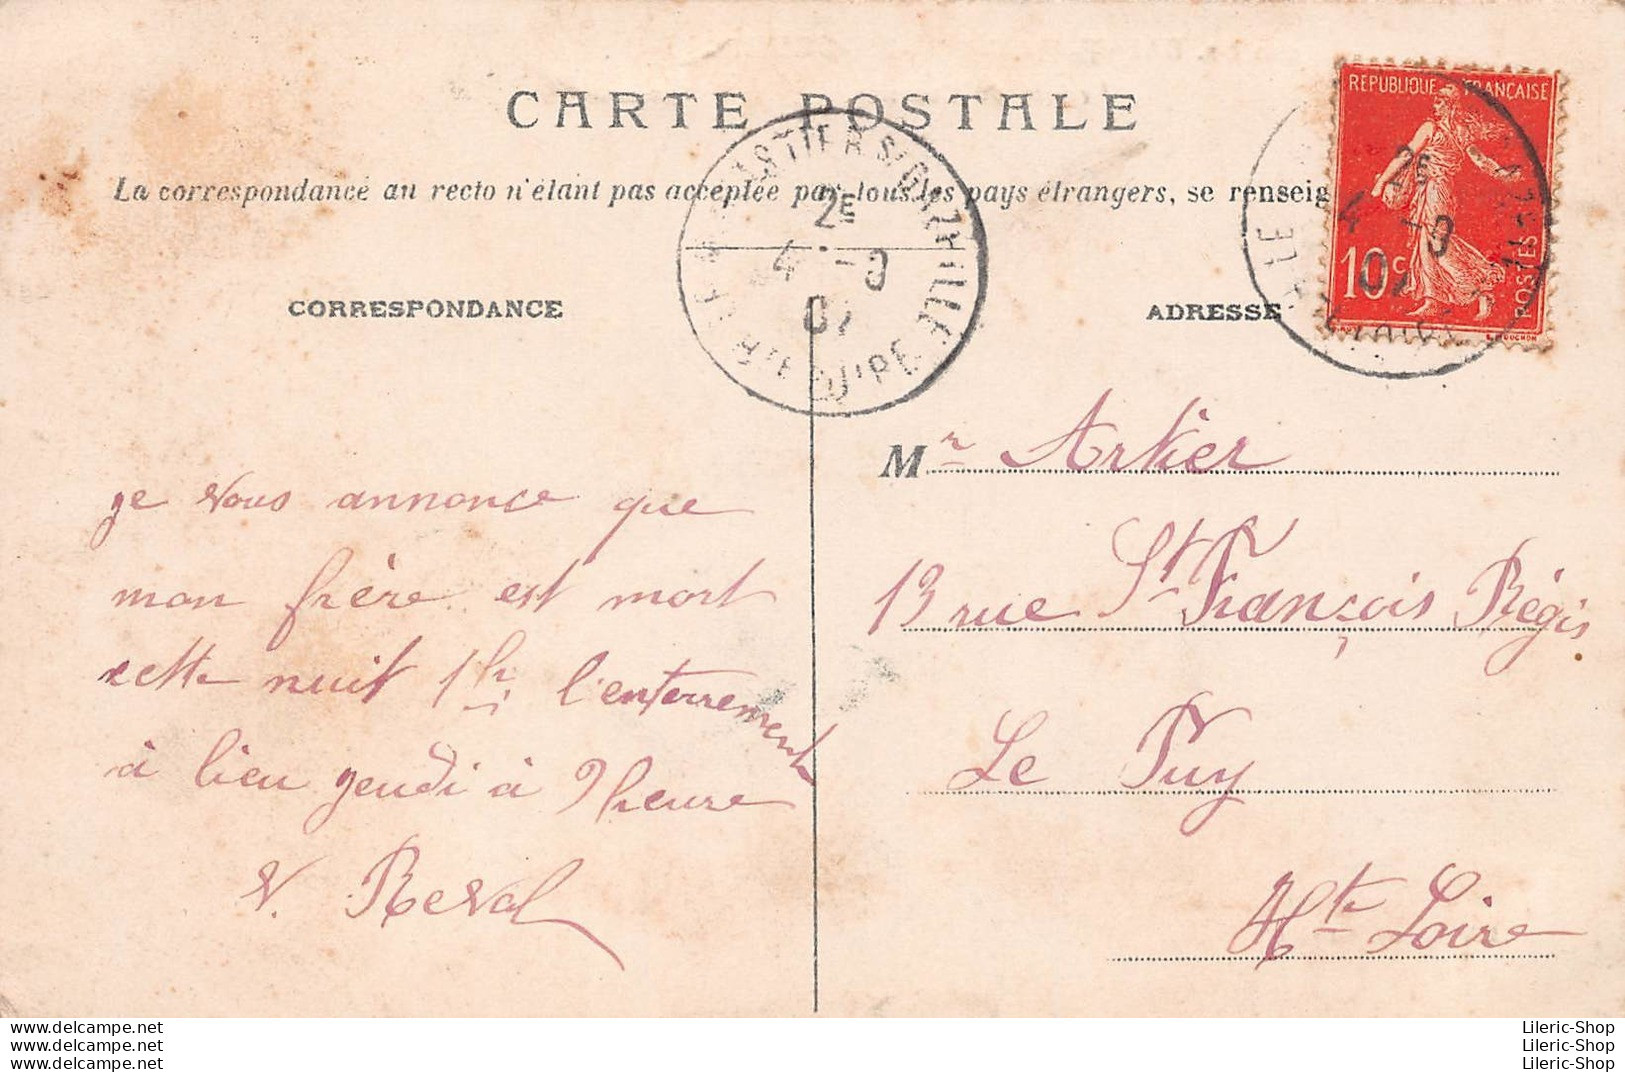 CARTE POSTALE
La correspondance au recto n'étant pas acceptée par tous les pays étrangers, se renseig
REPUBLIQUE FRANÇAISE
10c
POSTES
2E
4 - 9
07
CORRESPONDANCE
ADRESSE
je vous annonce que
mon frère est mort
cette nuit 1h l'enterrement
à lieu jeudi à 9 heure
V. Reval
Mr Artier
13 rue St François Régis
Le Puy
Hte Loire
www.delcampe.net
www.delcampe.net
www.delcampe.net
Lileric-Shop
Lileric-Shop
Lileric-Shop